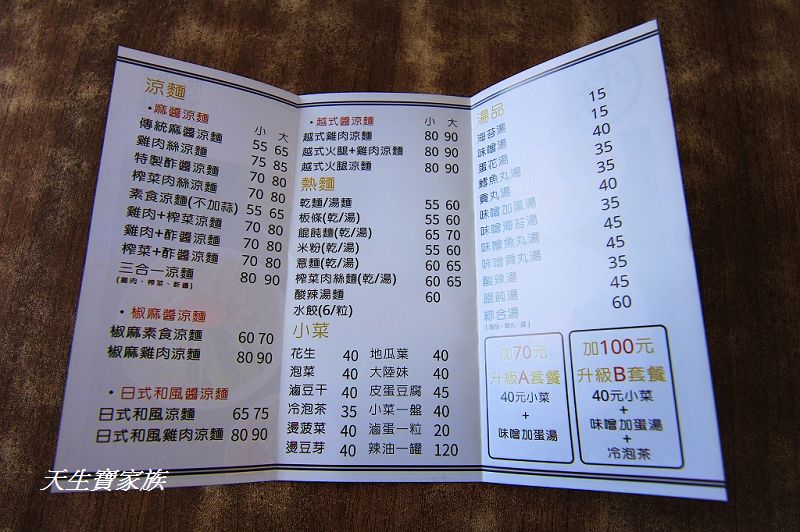 涼麵
・麻醬涼麵 小 大
傳統麻醬涼麵 55 65
雞肉絲涼麵 75 85
特製酢醬涼麵 70 80
榨菜肉絲涼麵 70 80
素食涼麵(不加蒜) 55 65
雞肉+榨菜涼麵 70 80
雞肉+酢醬涼麵 70 80
榨菜+酢醬涼麵 70 80
三合一涼麵 80 90
(雞肉、榨菜、酢醬)
・椒麻醬涼麵
椒麻素食涼麵 60 70
椒麻雞肉涼麵 80 90
・日式和風醬涼麵
日式和風涼麵 65 75
日式和風雞肉涼麵 80 90
・越式醬涼麵 小 大
越式雞肉涼麵 80 90
越式火腿+雞肉涼麵 80 90
越式火腿涼麵 80 90
熱麵
乾麵/湯麵 55 60
板條(乾/湯) 55 60
餛飩麵(乾/湯) 65 70
米粉(乾/湯) 55 60
意麵(乾/湯) 60 65
榨菜肉絲麵(乾/湯) 60 65
酸辣湯麵 60
水餃(6/粒)
小菜
花生 40 地瓜葉 40
泡菜 40 大陸妹 40
滷豆干 40 皮蛋豆腐 45
冷泡茶 35 小菜一盤 40
燙菠菜 40 滷蛋一粒 20
燙豆芽 40 辣油一罐 120
湯品
海苔湯 15
味噌湯 15
蛋花湯 40
鱈魚丸湯 35
貢丸湯 35
味噌加蛋湯 40
味噌海苔湯 35
味噌魚丸湯 45
味噌貢丸湯 45
酸辣湯 35
餛飩湯 45
綜合湯 60
加70元
升級A套餐
40元小菜
+
味噌加蛋湯
加100元
升級B套餐
40元小菜
+
味噌加蛋湯
+
冷泡茶
天生寶家族